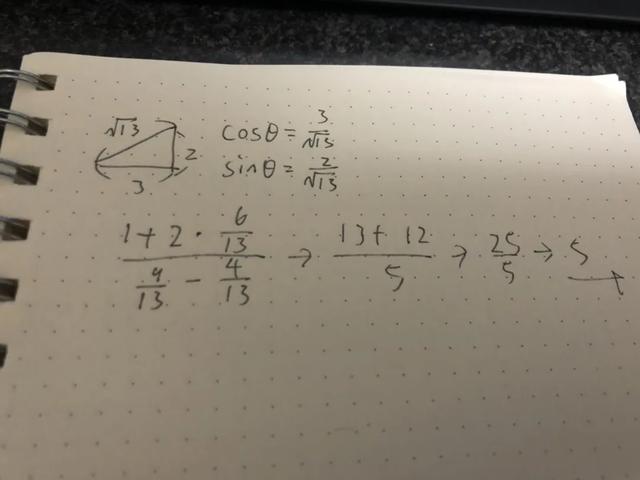 √13
2
3
cosθ = 3/√13
sinθ = 2/√13
(1 + 2 · 6/13)/(9/13 − 4/13) → (13 + 12)/5 → 25/5 → 5